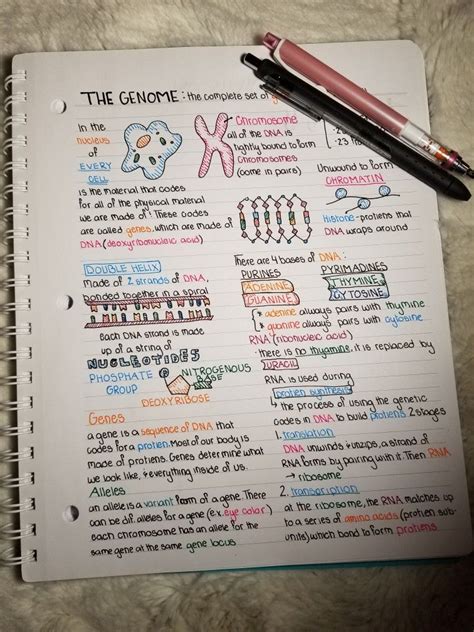 THE GENOME: the complete set of
In the
nucleus
of
EVERY
CELL
is the material that codes
for all of the physical material
we are made of! These codes
are called genes, which are made of
DNA (deoxyribonucleic acid)
Chromosome
all of the DNA is
tightly bound to form
Chromosomes
(come in pairs)
Unwound to form
CHROMATIN
Histone-proteins that
DNA wraps around
DOUBLE HELIX
made of 2 strands of DNA,
bonded together in a spiral
Each DNA strand is made
up of a string of
NUCLEOTIDES
PHOSPHATE
GROUP
NITROGENOUS
BASE
DEOXYRIBOSE
There are 4 bases of DNA:
PURINES
ADENINE
GUANINE
PYRIMADINES
THYMINE
CYTOSINE
* adenine always pairs with thymine
* guanine always pairs with cytosine
RNA (ribonucleic acid)
there is no thyamine, it is replaced by
URACIL
RNA is used during
protien synthesis
the process of using the genetic
codes in DNA to build protiens 2 stages
1. translation
DNA unwinds & unzips, a strand of
RNA forms by pairing with it. Then RNA
→ ribosome
2. transcription
at the ribosome, the RNA matches up
to a series of amino acids (protien sub-
units) which bond to form protiens
Genes
a gene is a sequence of DNA that
codes for a protien. Most of our body is
made of protiens. Genes determine what
we look like, & everything inside of us.
Alleles
an allele is a variant form of a gene. There
can be dif. alleles for a gene (ex. eye color)
each chromosome has an allele for the
same gene at the same gene locus